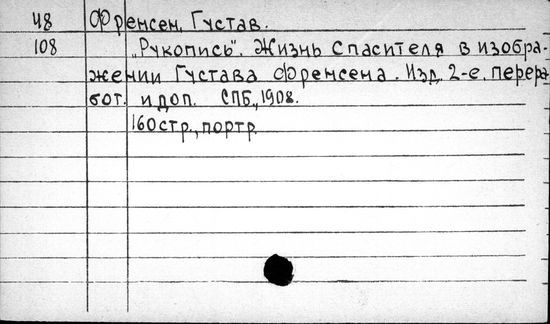 48 Френсен, Густав.
108 „Рукопись". Жизнь Спасителя в изобра-
жении Густава Френсена. Изд. 2-е, перера
бот. и доп. СПБ, 1908.
160стр., портр.